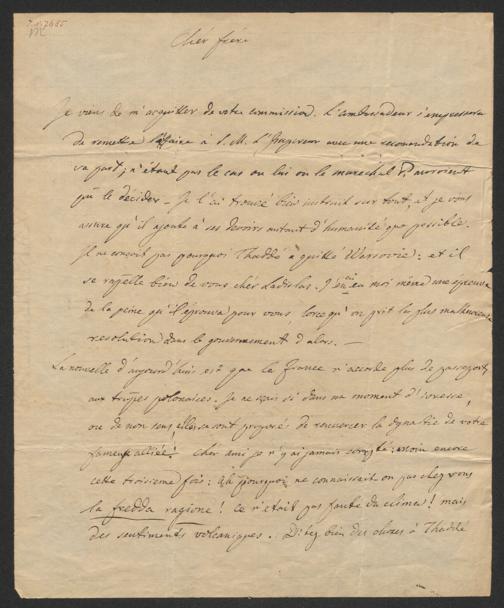 Cher frère
Je viens de m'acquitter de votre commission. L'ambassadeur s'empressera
de remettre l'affaire à S. M. l'Empereur avec une recomendation de
sa part; n'étant pas le cas ou lui ou le marechal D. auroient
pu le décider - Je l'ai trouvé bien instruit sur tout, et je vous
assure qu'il ajoute à ses devoirs autant d'humanité que possible.
Il ne conçoit pas pourquoi Thaddé a quitté Warsovie: et il
se rapelle bien de vous cher Ladislas. J'en ai eu moi même une epreuve
de la peine qu'il éprouva pour vous lorsqu'on prit la plus malheureuse
resolution dans le gouvernement d'alors. —
La nouvelle d'aujourd'huis est que la France n'accorde plus de passeports
aux troupes polonaises. Je ne sais si dans un moment d'ivresse,
ou de non sens, elles se sont proposé de renverser la dynastie de votre
fameuse alliée! Cher ami je n'y ai jamais compté: moin encore
cette troisieme fois: Ah pourquoi ne connaissait on pas chez vous
la fredda ragione! Ce n'était pas faute du climat! mais
des sentiments volcaniques. Ditez bien des choses à Thaddé